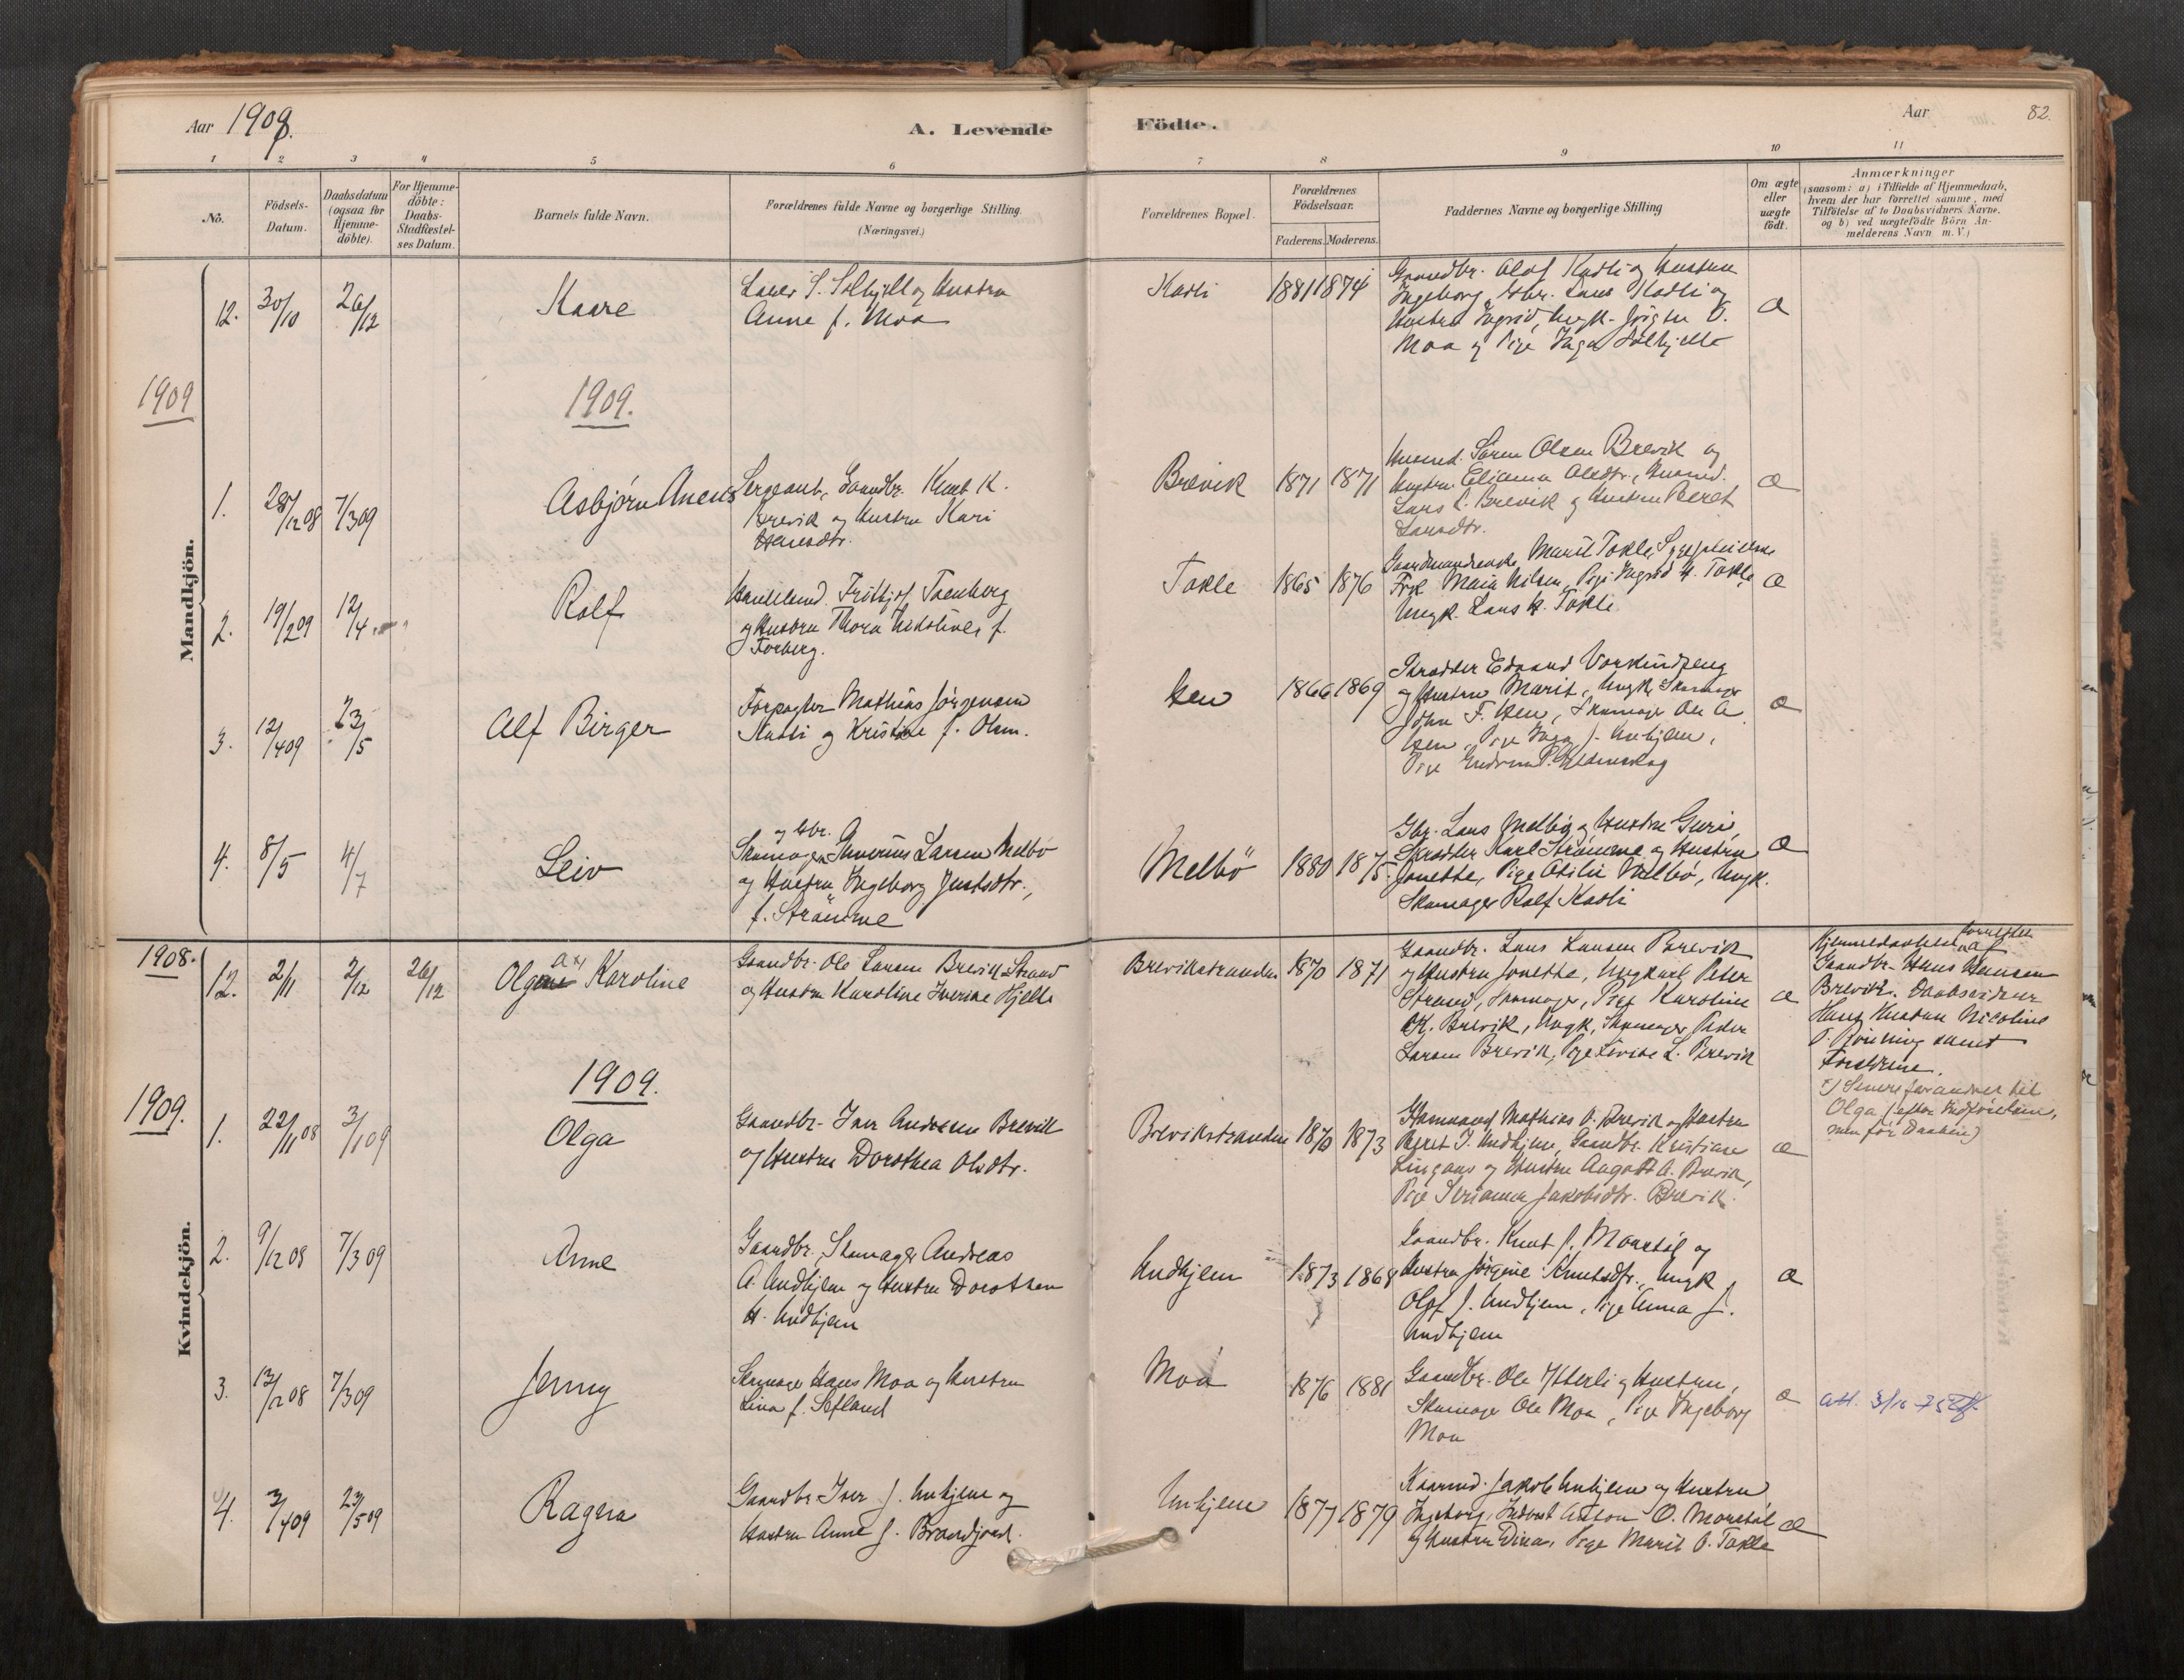 Aar 1909.
A. Levende
Födte.
Aar
82.
1 2 3 4 5 6 7 8 9 10 11
No.
Födsels-
Datum.
Daabsdatum
(ogsaa for
Hjemme-
döbte).
For Hjemme-
döbte:
Daabs-
Stadfæstel-
ses Datum.
Barnets fulde Navn.
Forældrenes fulde Navne og borgerlige Stilling.
(Næringsvei.)
Forældrenes Bopæl.
Forældrenes
Födselsaar.
Faderens. Moderens.
Faddernes Navne og borgerlige Stilling
Om ægte
eller
uægte
födt.
Anmærkninger
(saasom: a) i Tilfælde af Hjemmedaab,
hvem der har forrettet samme, med
Tilföielse af to Daabsvidners Navne,
og b) ved uægtefödte Börn An-
melderens Navn m. V.)
Mandkjön.
12. 30/10 26/12 Kaare
Lauer S. Solhjell og Hustru
Anne f. Moa
Kasli 1881 1874
Gaardbr. Olaf Kasli og Hustru
Ingeborg, Gbr. Lars Kasli og
Hustru Ingrid, Ungk. Jörgen O.
Moa og Pige Inga Solhjell
æ
1909
1909.
1. 28/12 08 7/3 09 Asbjørn Aneus
Sergeant, Gaardbr. Knut K.
Brevik og Hustru Kari
Hansdtr.
Brevik 1871 1871
Husmd. Sören Olsen Brevik og
Hustru Elianna Olsdtr., Husmd.
Lars L. Brevik og Hustru Beret
Larsdtr.
æ
2. 19/2 09 12/4 Rolf
Handelsmd. Fritjof Tornberg
og Hustru Thora f.
Forberg.
Takle 1865 1876
Gaardmandsenke Marit Takle,
Frk. Maria Nilsen, Pige Ingrid H. Takle,
Ungk. Lars H. Takle
æ
3. 12/4 09 23/5 Alf Birger
Forpagter Mathias Jörgensen
Kasli og Kristine f. Olsen.
Hen 1866 1869
Skrædder Edvard Vorkindpeng
og Hustru Marit, Ungk. Skomager
John F. Hen, Skomager Ole A.
Hen, Pige Inga J. Unhjem,
Pige Gudrun P.
æ
4. 8/5 4/7 Leiv
og Gbr.
Skomager Severius Larsen Melbö
og Hustru Ingeborg Justsdtr.,
f. Strömme
Melbö 1880 1875
Gbr. Lars Melbö og Hustru Guri,
Skrædder Karl Strömme og Hustru
Jonetta, Pige Otilie Melbö, Ungk.
Skomager Rolf Kasli
æ
Kvindekjön.
1908.
12. 2/11 2/12 26/12 Olga x) Karoline
Gaardbr. Ole Larsen Brevik Strand
og Hustru Karoline Iverine Hjelle
Brevikstranden 1870 1871
Gaardbr. Lars Larsen Brevik
og Hustru Jonetta, Ungkarl Peter
Strand, Skomager, Pige Karoline
K. Brevik, Ungk. Skomager Peder
Larsen Brevik, Pige Lovise L. Brevik
æ
Hjemmedaaben forrettet af
Gaardbr. Hans Hansen
Brevik. Daabsvidner
Hans Hustru Nicoline
T. Röuning samt
Forældrene.
x) Senere forandret til
Olga (efter Indförelsen,
men för Daaben)
1909.
1909.
1. 22/11 08 3/1 09 Olga
Gaardbr. Iver Andersen Brevik
og Hustru Dorothea Olsdtr.
Brevikstranden 1870 1873
Mathias O. Brevik og Hustru
Beret I. Undhjem, Gaardbr. Kristian
og Hustru Augotta A. Brevik,
Pige Serianna Jakobsdtr. Brevik.
æ
2. 9/12 08 7/3 09 Anne
Gaardbr. Skomager Andreas
A. Undhjem og Hustru Dorothea
H. Undhjem
Undhjem 1873 1868
Gaardbr. Knut J. Monstöl og
Hustru Jörgine Knutsdtr., Ungk.
Olaf J. Undhjem, Pige Anna J.
Undhjem
æ
3. 13/12 08 7/3 09 Jenny
Skomager Hans Moa og Hustru
Lina f. Sefland
Moa 1876 1881
Gaardbr. Ole Ytterli og Hustru,
Skomager Ole Moa, Pige Ingeborg
Moa
æ
att. 3/10 75
4. 3/4 09 23/5 09 Ragna
Gaardbr. Iver J. Unhjem og
Hustru Anne J. Brandjord.
Unhjem 1877 1879
Kaarmd. Jakob Unhjem og Hustru
Ingeborg, Inderst Anton O. Monstöl
og Hustru Dina, Pige Marit O. Takle
æ